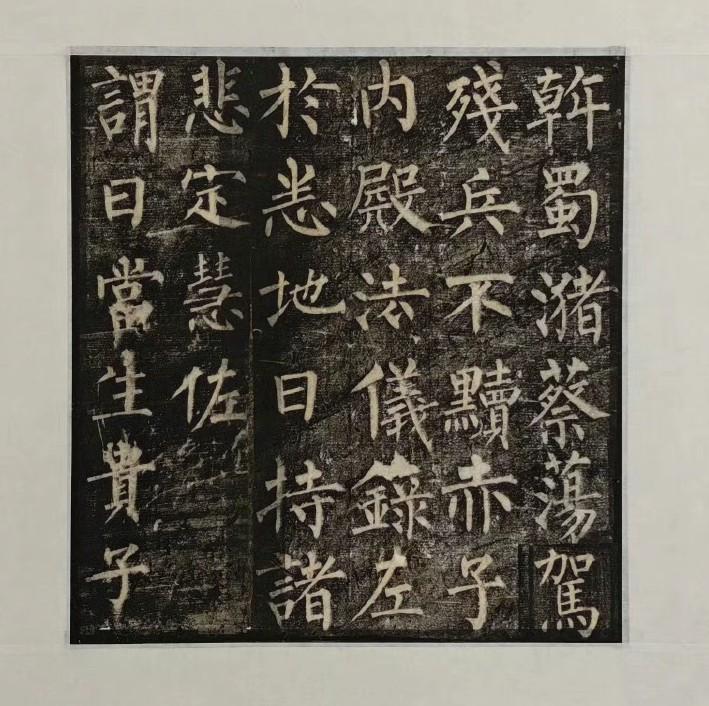 斡蜀瀦蔡蕩駕
殘兵不黷赤子
内殿法儀錄左
於悉地日持諸
悲定慧佐
謂曰當生貴子